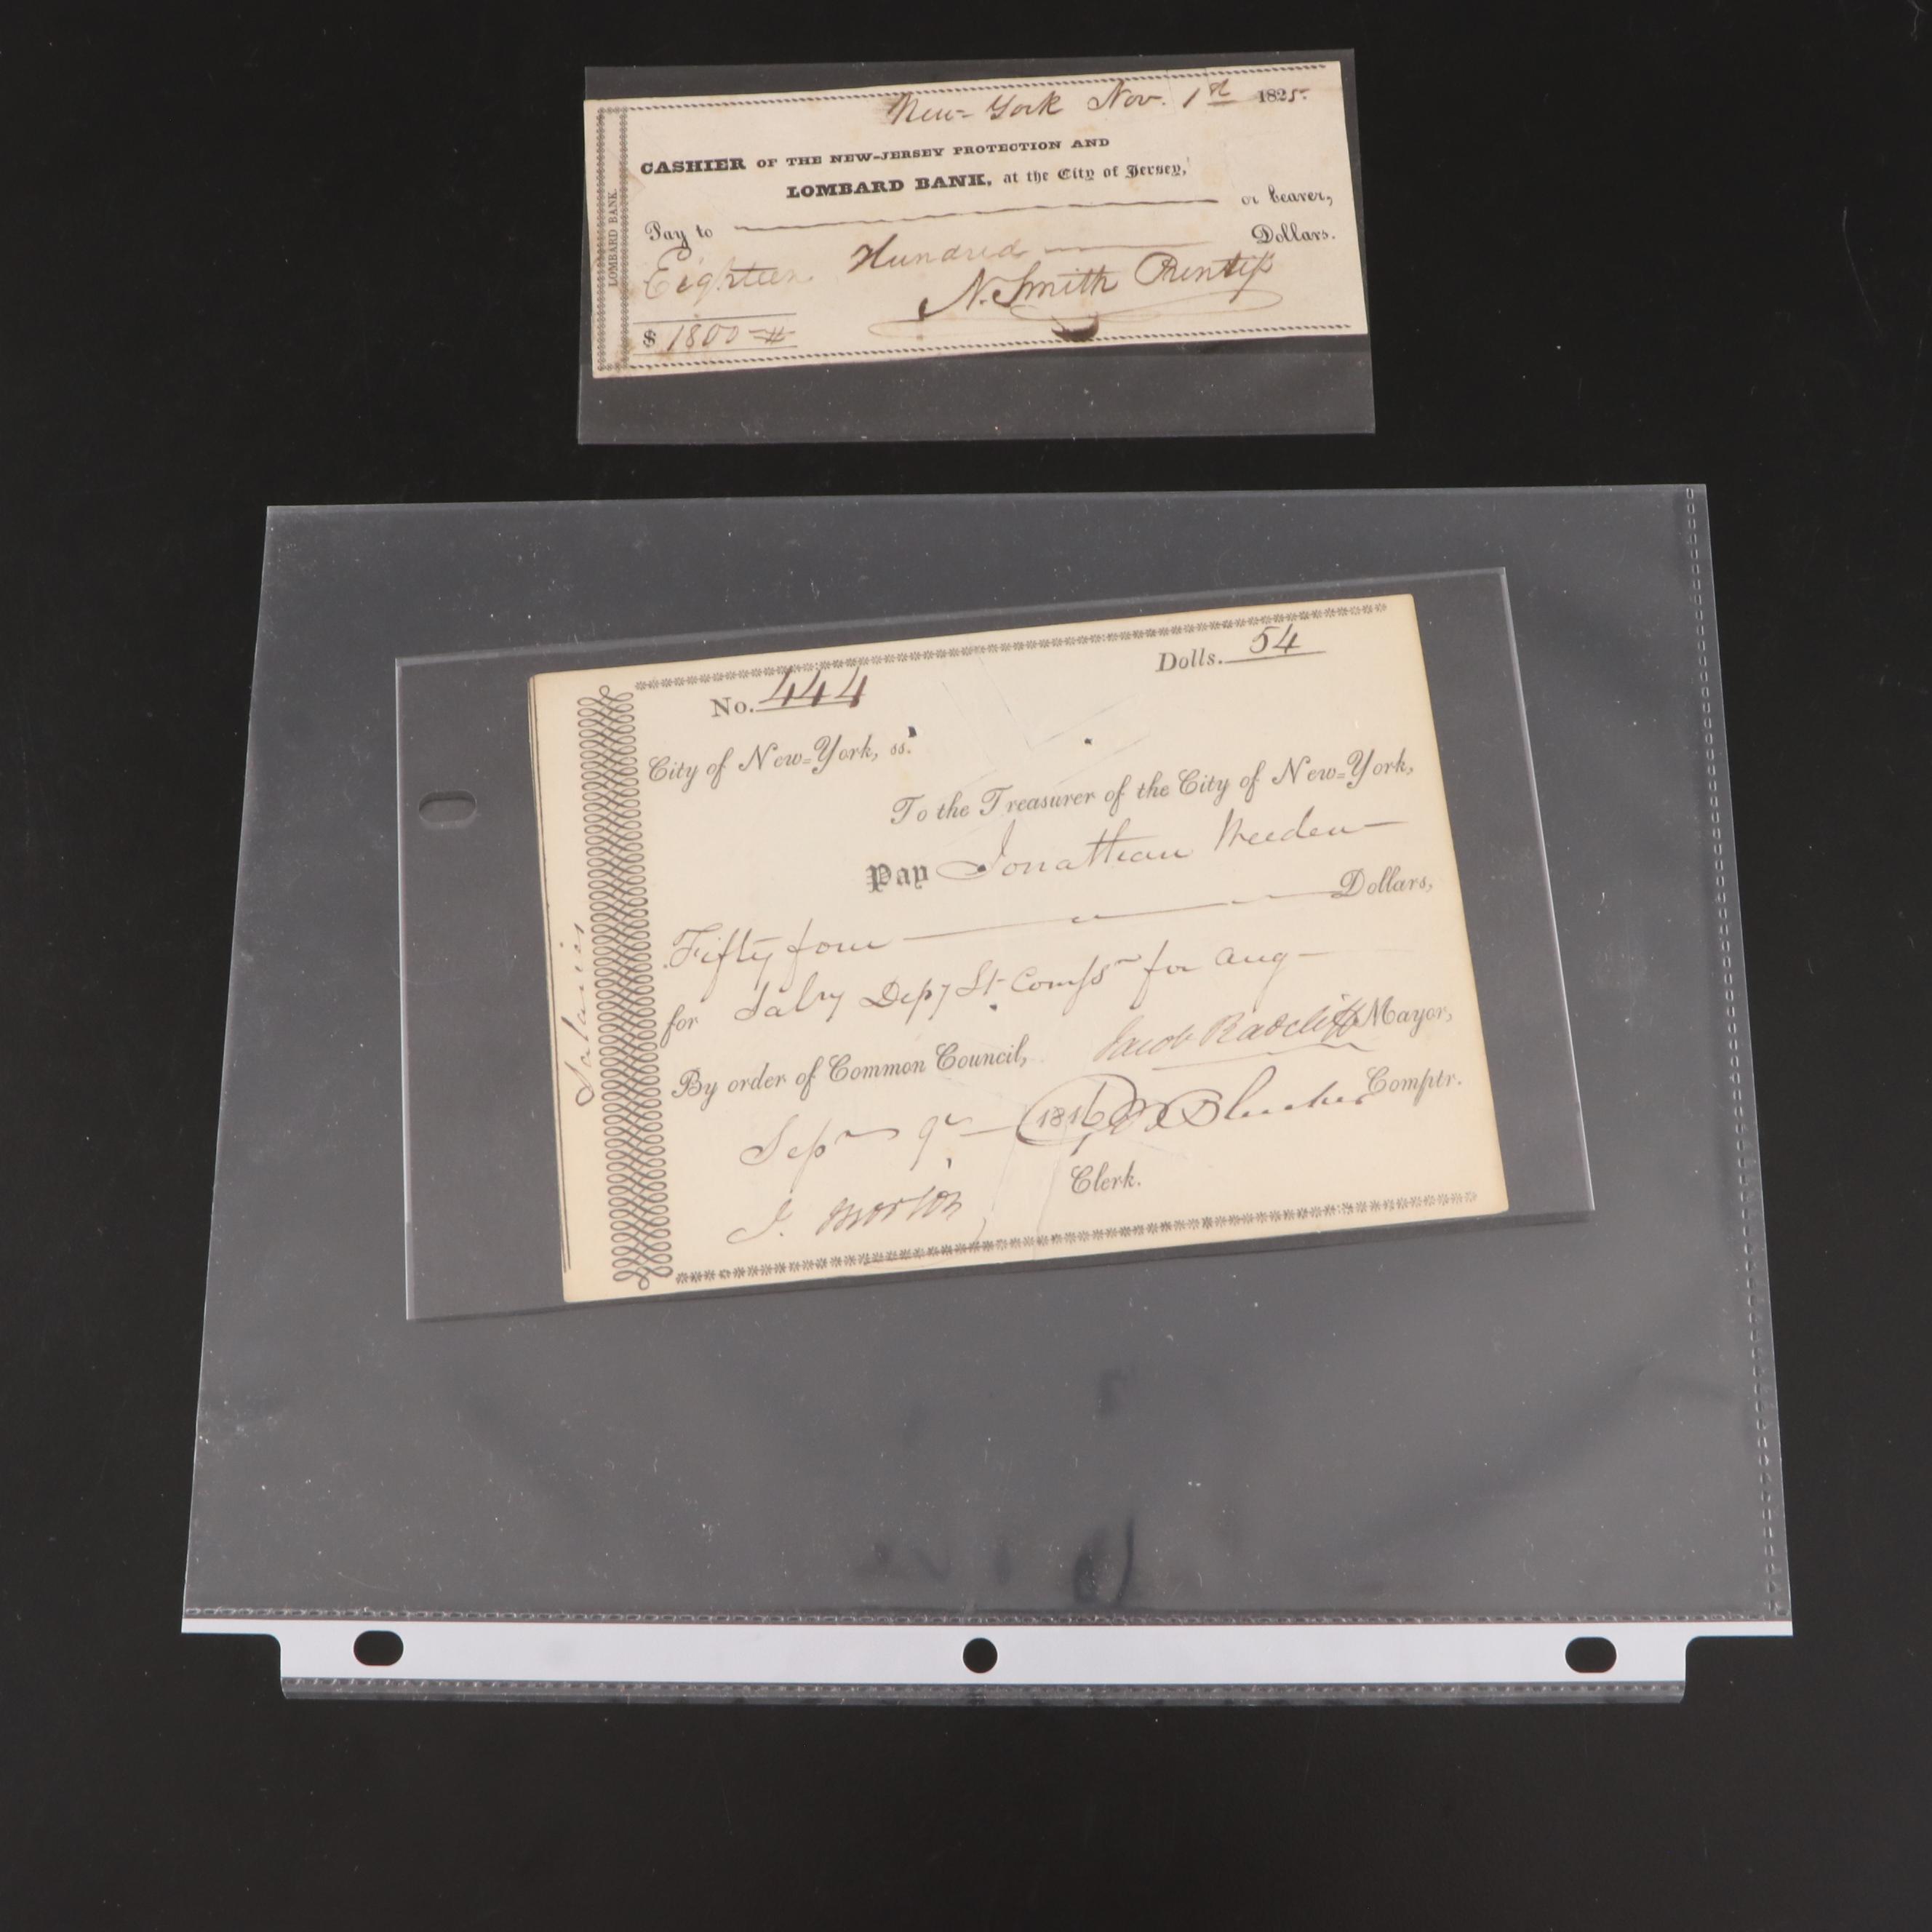 New-York Nov. 1st 1825.
CASHIER OF THE NEW-JERSEY PROTECTION AND
LOMBARD BANK, at the City of Jersey,
Pay to or bearer,
Eighteen Hundred Dollars.
N. Smith Prentiss
$ 1800
LOMBARD BANK.
No. 444 Dolls. 54
City of New-York, ss.
To the Treasurer of the City of New-York,
Pay Jonathan Weeden
Fifty four Dollars,
for Salry Depy St Comssr for Aug
By order of Common Council, Jacob Radcliff Mayor,
Sepr 9 1816 Comptr.
J. Morton Clerk.
Salaries